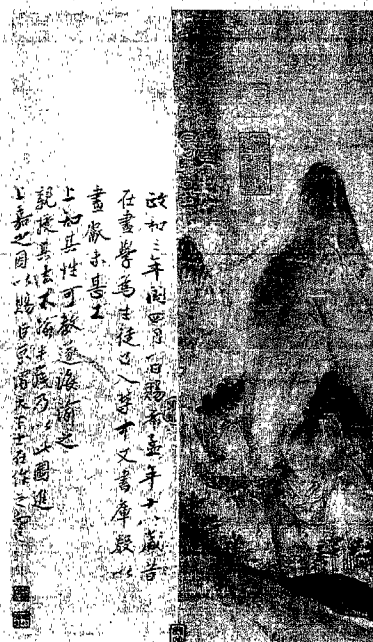 政和三年閏四月一日賜希孟年十八歲昔
在畫學為生徒召入禁中文書庫數以
畫獻未甚工
上知其性可教遂誨諭之
親授其法不踰半歲乃以此圖進
上嘉之因以賜臣京謂天下士在作之